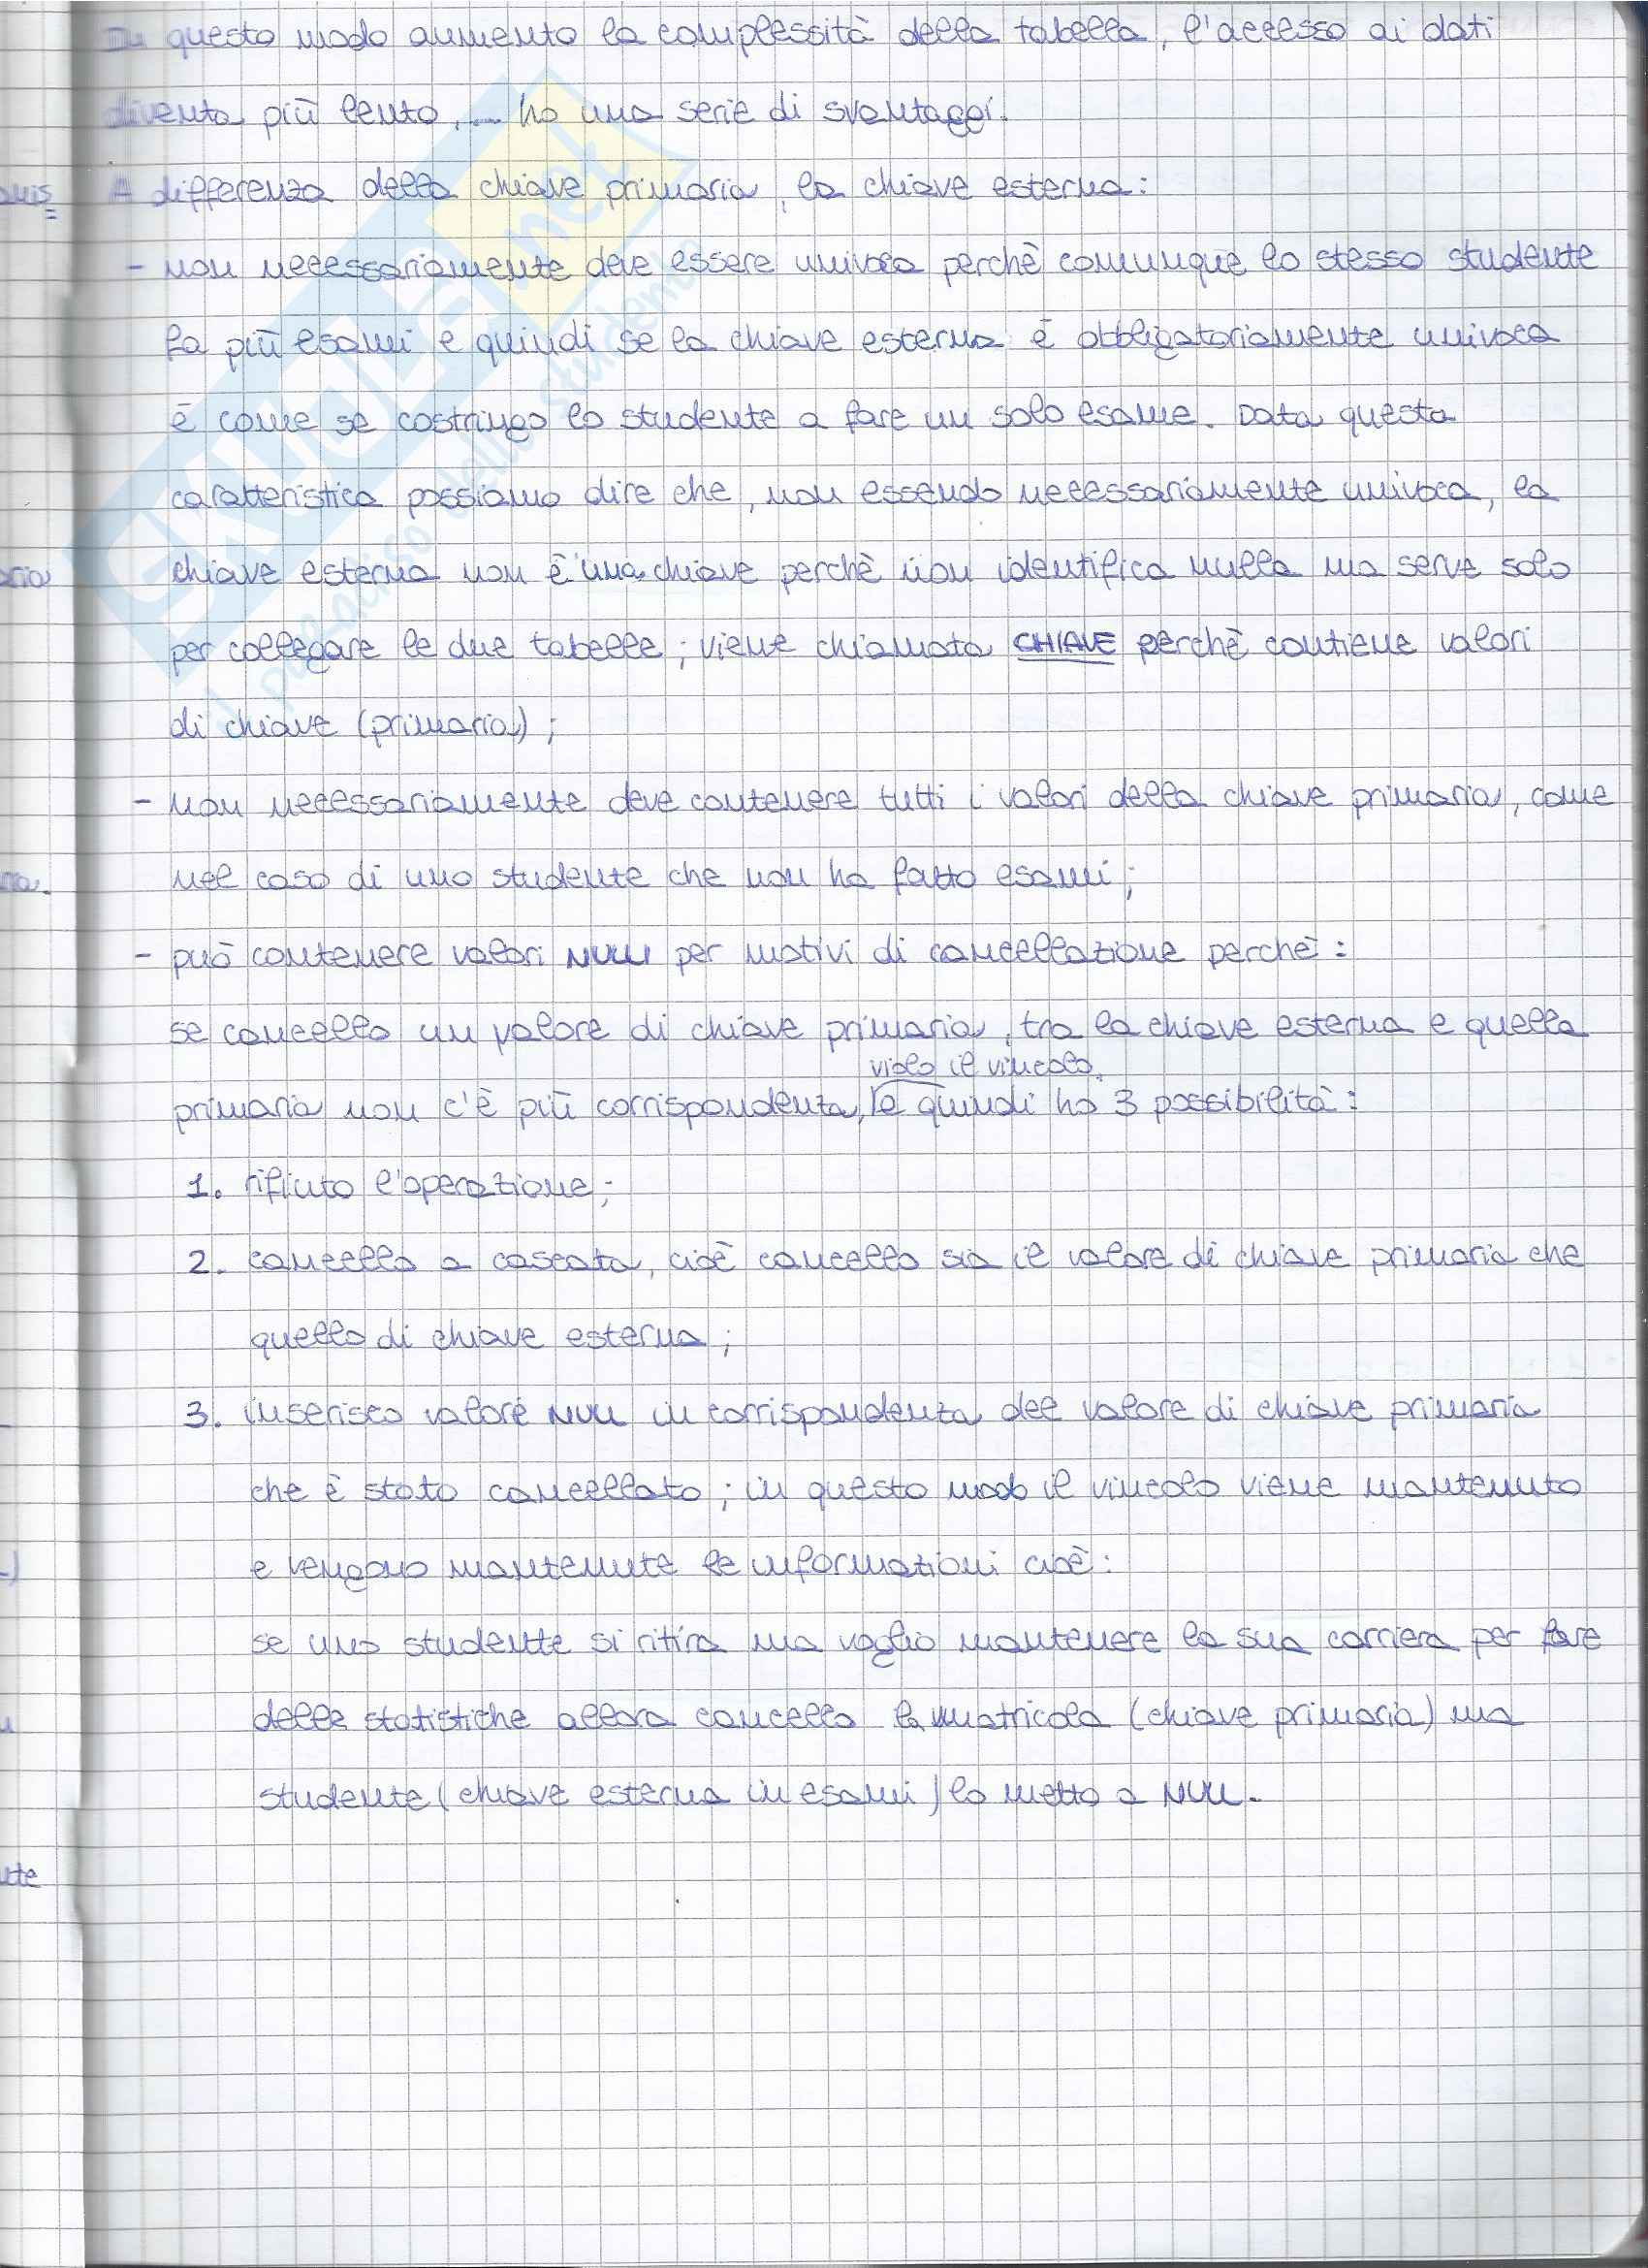 In questo modo aumento la complessità della tabella, l'accesso ai dati
diventa più lento, ... ho una serie di svantaggi.
A differenza della chiave primaria, la chiave esterna:
- non necessariamente deve essere univoca perchè comunque lo stesso studente
fa più esami e quindi se la chiave esterna è obbligatoriamente univoca
è come se costringo lo studente a fare un solo esame. Data questa
caratteristica possiamo dire che, non essendo necessariamente univoca, la
chiave esterna non è una chiave perchè non identifica nulla ma serve solo
per collegare le due tabelle; viene chiamata CHIAVE perchè contiene valori
di chiave (primaria);
- non necessariamente deve contenere tutti i valori della chiave primaria, come
nel caso di uno studente che non ha fatto esami;
- può contenere valori NULL per motivi di cancellazione perchè:
se cancello un valore di chiave primaria, tra la chiave esterna e quella
violo il vincolo,
primaria non c'è più corrispondenza, e quindi ho 3 possibilità:
1. rifiuto l'operazione;
2. cancello a cascata, cioè cancello sia il valore di chiave primaria che
quello di chiave esterna;
3. inserisco valore NULL in corrispondenza del valore di chiave primaria
che è stato cancellato; in questo modo il vincolo viene mantenuto
e vengono mantenute le informazioni cioè:
se uno studente si ritira ma voglio mantenere la sua carriera per fare
delle statistiche allora cancello la matricola (chiave primaria) ma
studente (chiave esterna in esami) lo metto a NULL.